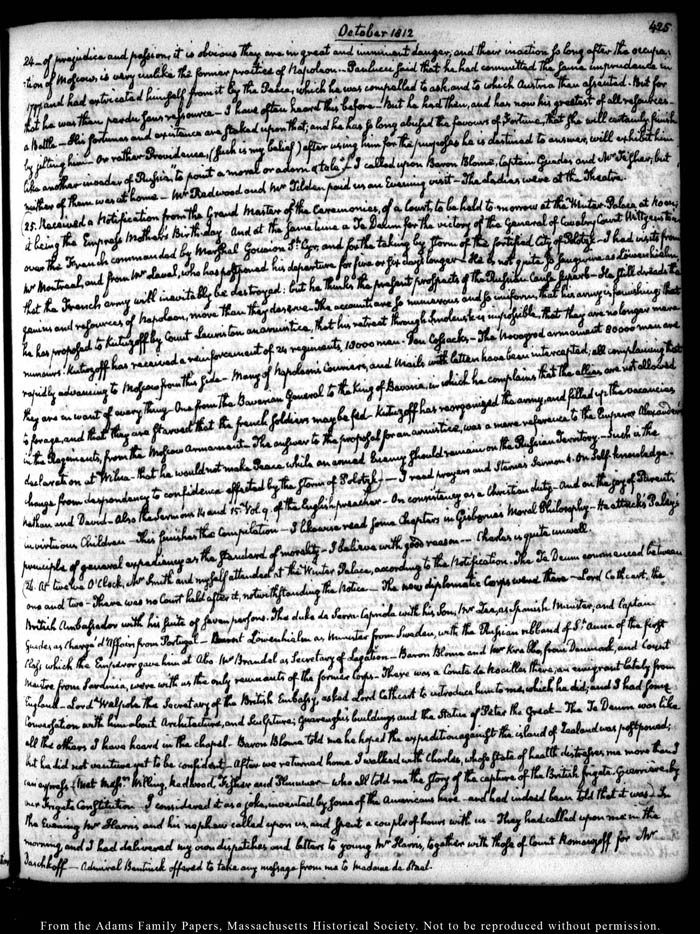 October 1812
425
24_ of prejudice and passion, it is obvious they are in great and imminent danger, and their inaction so long after the occupa-
tion of Moscow, is very unlike the former practice of Napoleon_ Paulucci said that he had committed the same imprudence in
1797, and had extricated himself from it by the Peace, which he was compelled to ask, and to which Austria then assented. But for
that he was then perdu sans ressource_ I have often heard this before_ But he had then, and has now his greatest of all resources_
a Battle_ His fortunes and existence are staked upon that; and he has so long abused the favours of Fortune, that she will certainly finish
by jilting him_ Or rather Providence, (such is my belief) after using him for the purposes he is destined to answer, will exhibit him
like another invader of Russia, "to point a moral or adorn a tale"_ I called upon Baron Blome, Captain Guedes and Mr Fisher; but
neither of them was at home_ Mr Redwood and Mr Tilden paid us an Evening visit_ The Ladies were at the Theatre.
25. Received a Notification from the Grand Master of the Ceremonies, of a Court, to be held to-morrow at the Winter Palace at Noon;
it being the Empress Mother's Birth-day. And at the same time a Te Deum for the victory of the General of Cavalry Count Wittgenstein
over the French commanded by Marshal Gouvion St. Cyr, and for the taking by storm of the fortified City of Polotzk_ I had visits from
Mr Montreal, and from Mr Laval, who has postponed his departure for five or six days longer_ He is not quite so sanguine as Löwenhielm,
that the French army will inevitably be destroyed: but he thinks the present prospects of the Russian cause superb_ He still dreads the
genius and resources of Napoleon, more than they deserve. The accounts are so numerous and so uniform, that his army is famishing; that
he has proposed to Kutuzoff by Count Lauriston an armistice, that his retreat through Smolensk is impossible, that they are no longer mere
rumours. Kutuzoff has received a reinforcement of 24 regiments, 18000 men, Don Cossacks_ The Novogorod armament 80000 men are
rapidly advancing to Moscow from this side_ Many of Napoleon's Couriers, and Mails with letters have been intercepted; all complaining that
they are in want of every thing_ One from the Bavarian General to the King of Bavaria, in which he complains that the allies are not allowed
to forage, and that they are starved that the french soldiers may be fed_ Kutuzoff has reorganized the army, and filled up the vacancies
in the Regiments, from the Moscow Armament_ The answer to the proposal for an armistice, was a mere reference to the Emperor Alexander's
declaration at Wilna_ that he would not make Peace while an armed Enemy should remain on the Russian Territory_ Such is the
change from despondency to confidence effected by the storm of Polotzk!_ I read prayers and Sterne's Sermon 4. On Self-knowledge_
Nathan and David_ Also the Sermons 14 and 15. Vol 9. of the English preacher_ On constancy as a Christian duty_ And on the joy of Parents
in virtuous Children_ This finishes the Compilation_ I likewise read some Chapters in Gisborne's Moral Philosophy_ He attacks Paley's
principle of general expediency as the standard of morality_ I believe with good reason_ Charles is quite unwell.
26. At twelve O'Clock, Mr Smith and myself attended at the Winter Palace, according to the Notification_ The Te Deum commenced between
one and two_ There was no Court held after it, notwithstanding the Notice_ The new diplomatic Corps were there_ Lord Cathcart, the
British Ambassador with his suite of seven persons. The duke de Serra-Capriola with his Son, Mr Zea, as Spanish Minister, and Captain
Guedes as Chargé d'Affairs from Portugal_ Count Löwenhielm as Minister from Sweden, with the Russian ribband of St. Anne of the first
Class which the Emperor gave him at Abo. Mr Brandel as Secretary of Legation_ Baron Blome and Mr Krabbe, from Denmark, and Count
Maitre from Sardinia, were with us the only remnants of the former Corps_ There was a Comte de Noailles there, an emigrant lately from
England_ Lord Walpole the Secretary of the British Embassy, asked Lord Cathcart to introduce him to me, which he did; and I had some
Conversation with him about Architecture, and Sculpture; Quarenghi's buildings and the Statue of Peter the Great_ The Te Deum was like
all the others I have heard in the chapel_ Baron Blome told me he hoped the expedition against the island of Zealand was postponed;
but he did not venture yet to be confident_ After we returned home I walked with Charles, whose state of health distresses me more than I
can express_ Met Messrs Willing, Redwood, Fisher and Plummer_ who all told me the story of the capture of the British frigate Guerriere, by
our Frigate Constitution_ I considered it as a joke, invented by some of the Americans here_ and had indeed been told that it was_ In
the Evening Mr Harris and his nephew called upon us, and spent a couple of hours with us_ They had called upon me in the
morning, and I had delivered my own dispatches and letters to young Mr Harris, together with those of Count Romanzoff for Mr
Daschkoff_ Admiral Bentinck offered to take any message from me to Madame de Stael.
From the Adams Family Papers, Massachusetts Historical Society. Not to be reproduced without permission.